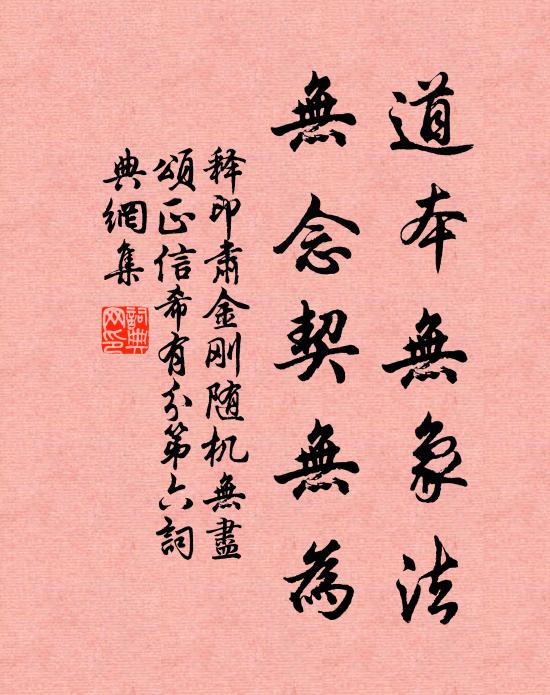 道本無象法
無念契無為
释印肃金刚随机無盡
頌正信希有分第六詞
典網集
詞典网印